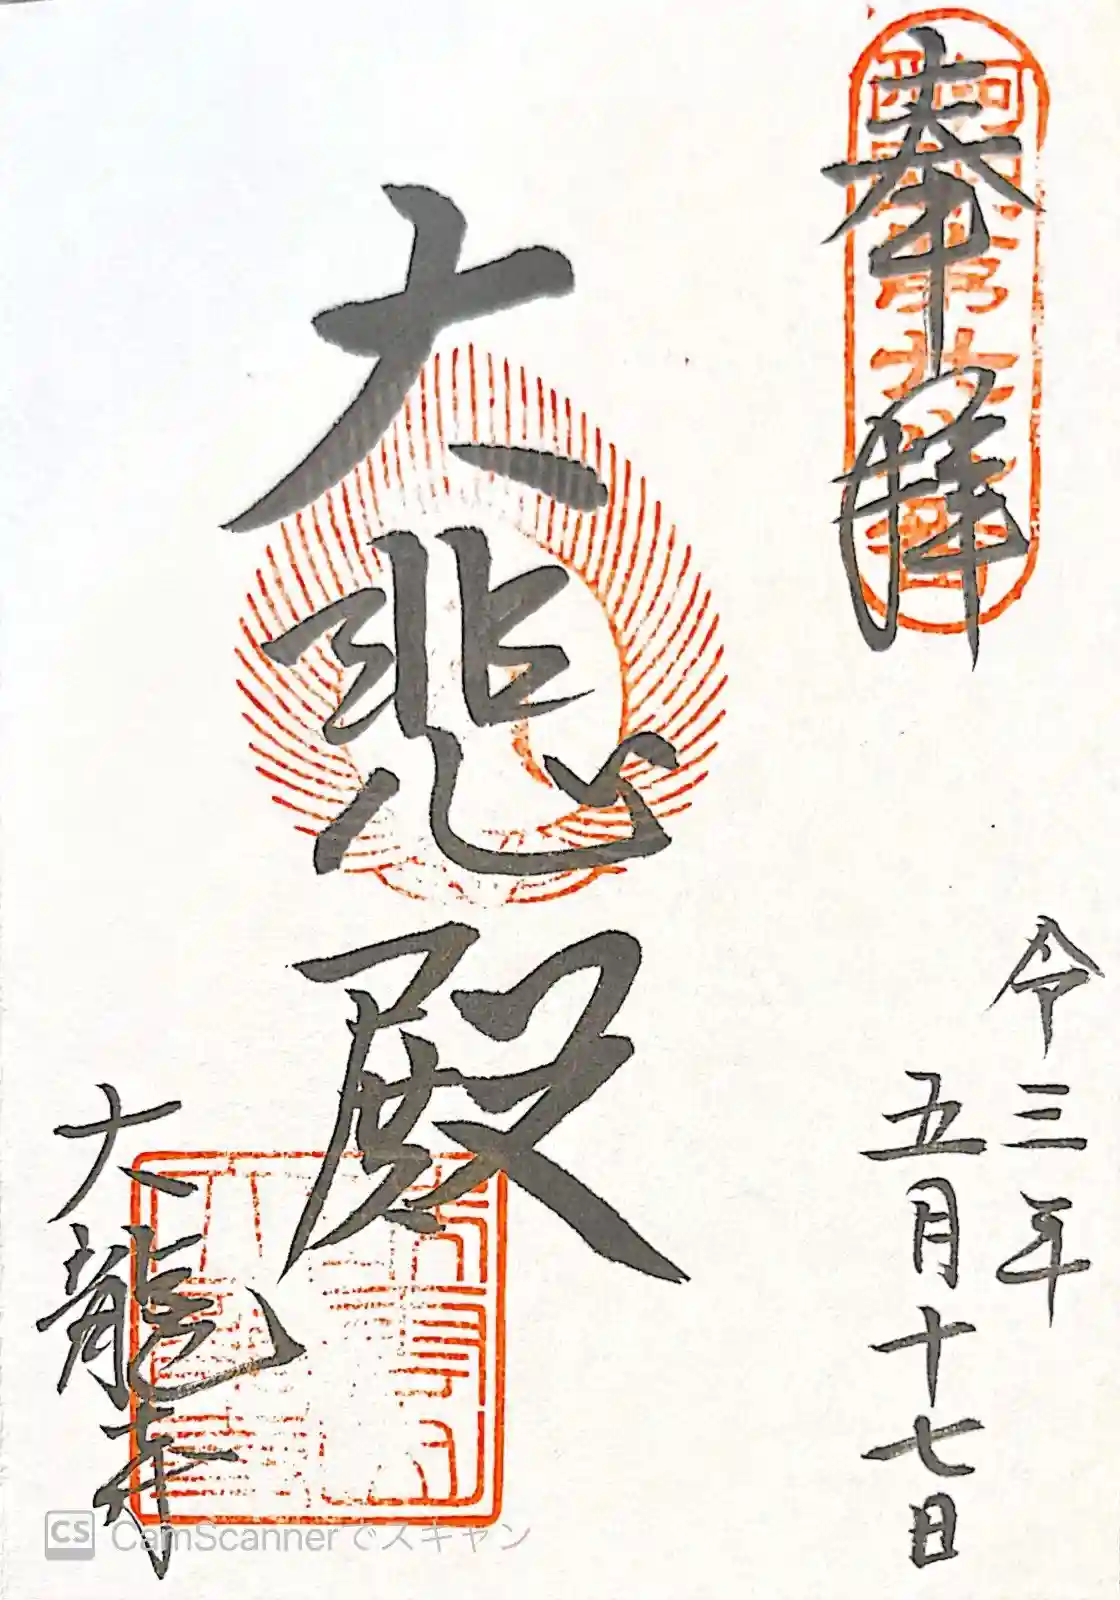 奉拝
令三年
五月十七日
大悲殿
大龍寺
CS CamScannerでスキャン